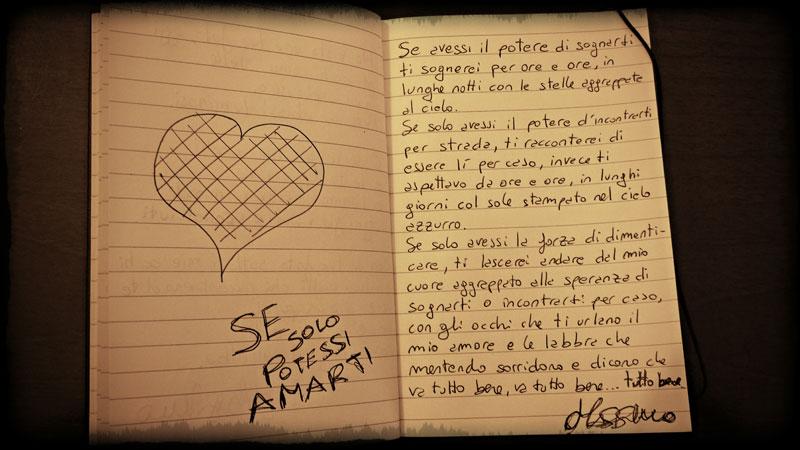 SE
SOLO
POTESSI
AMARTI
Se avessi il potere di sognarti
ti sognerei per ore e ore, in
lunghe notti con le stelle aggreppate
al cielo.
Se solo avessi il potere d'incontrarti
per strada, ti racconterei di
essere lí per caso, invece ti
aspettavo da ore e ore, in lunghi
giorni col sole stampato nel cielo
azzurro.
Se solo avessi la forza di dimenti-
care, ti lascerei andare dal mio
cuore aggreppato alla speranza di
sognarti o incontrarti per caso,
con gli occhi che ti urlano il
mio amore e le labbra che
mentendo sorridono e dicono che
va tutto bene, va tutto bene... tutto bene